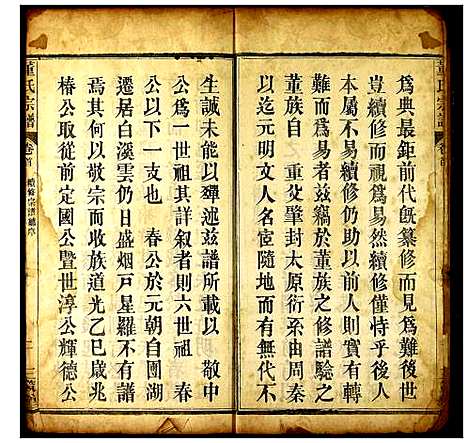 為典最鉅前代旣纂修而見為難後世
豈續修而視為易然續修僅恃乎後人
本屬不易續修仍助以前人則實有轉
難而為易者茲竊於董族之修譜驗之
董族自 重父肇封太原衍系由周秦
以迄元明文人名宦隨地而有無代不
生誠未能以殫述茲譜所載以 敬中
公為一世祖其詳叙者則六世祖 春
公以下一支也 春公於元朝自團湖
遷居白溪雲仍日盛烟戸星羅不有譜
焉其何以敬宗而收族道光乙巳歲兆
椿公從前定國公暨世淳公輝德公
董氏宗譜 卷首 續修宗譜總序 二